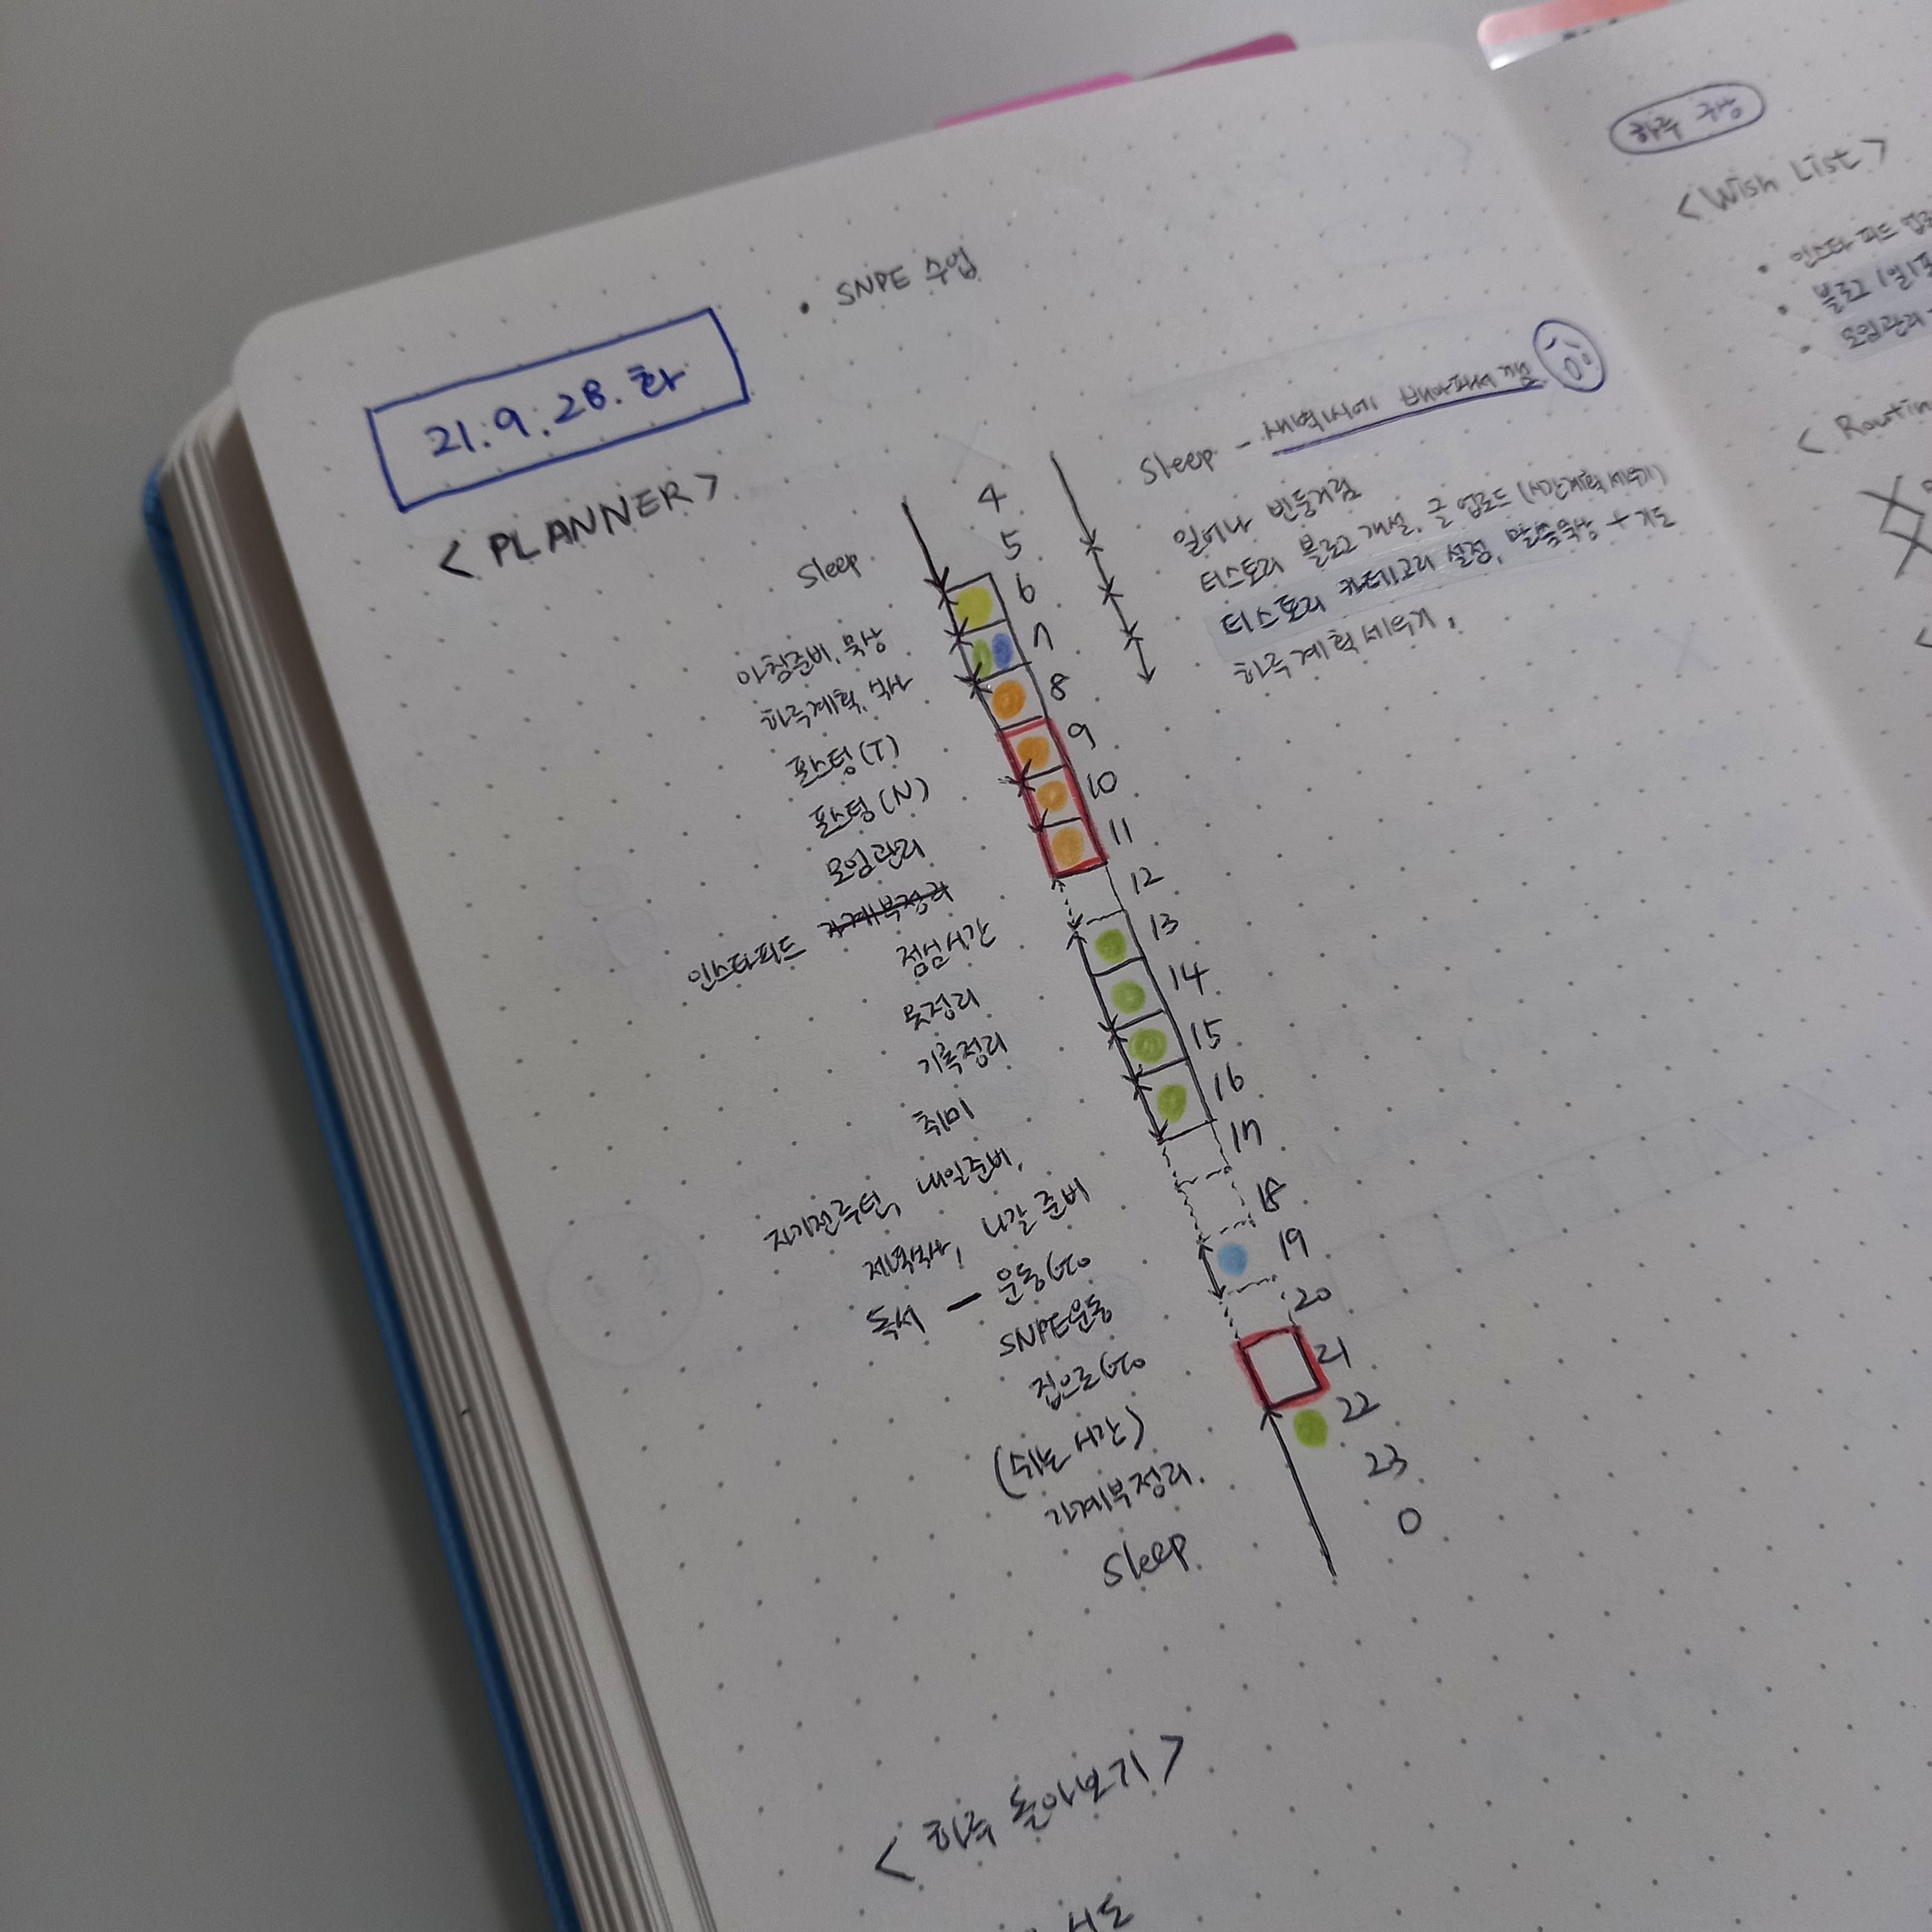 • SNPE 수업
21.9.28.화
< PLANNER >
Sleep
아침준비, 묵상
하루계획, 식사
포스팅(T)
포스팅(N)
모임관리
인스타피드 가계부정리
점심시간
옷정리
기록정리
취미
자기전루틴, 내일준비,
제벽식사, 나갈 준비
독서 — 운동 Go
SNPE운동
집으로 Go
(쉬는 시간)
가계부정리.
Sleep
4
5
6
7
8
9
10
11
12
13
14
15
16
17
18
19
20
21
22
23
0
Sleep - 새벽1시에 배아파서 깸
일어나 빈둥거림
티스토리 블로그 개설, 글 업로드 (시간계획 세우기)
티스토리 카테고리 설정, 말씀묵상 + 기도
하루계획세우기,
< 하루 돌아보기 >
하루 구상
< Wish List >
• 인스타 피드
• 블로그 1일1포
• 모임관리
< Routin